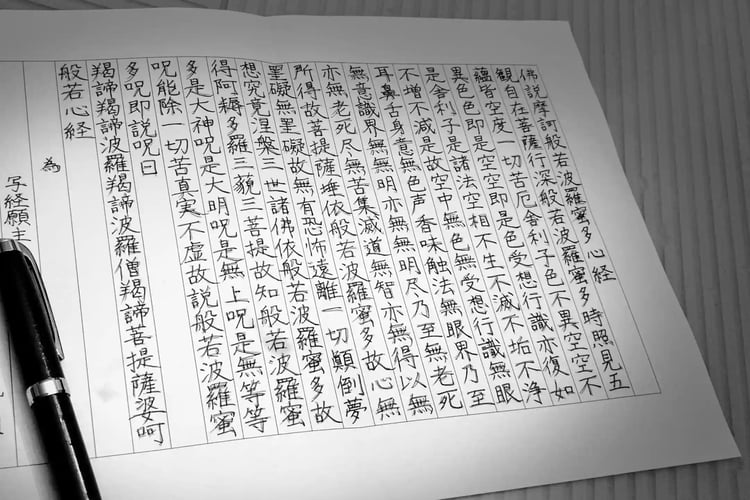 佛説摩訶般若波羅蜜多心経
観自在菩薩行深般若波羅蜜多時照見五
蘊皆空度一切苦厄舎利子色不異空空不
異色色即是空空即是色受想行識亦復如
是舎利子是諸法空相不生不滅不垢不浄
不増不減是故空中無色無受想行識無眼
耳鼻舌身意無色声香味触法無眼界乃至
無意識界無無明亦無無明尽乃至無老死
亦無老死尽無苦集滅道無智亦無得以無
所得故菩提薩埵依般若波羅蜜多故心無
罣礙無罣礙故無有恐怖遠離一切顛倒夢
想究竟涅槃三世諸佛依般若波羅蜜多故
得阿耨多羅三藐三菩提故知般若波羅蜜
多是大神呪是大明呪是無上呪是無等等
呪能除一切苦真実不虚故説般若波羅蜜
多呪即説呪曰
羯諦羯諦波羅羯諦波羅僧羯諦菩提薩婆呵
般若心経
為
写経願主